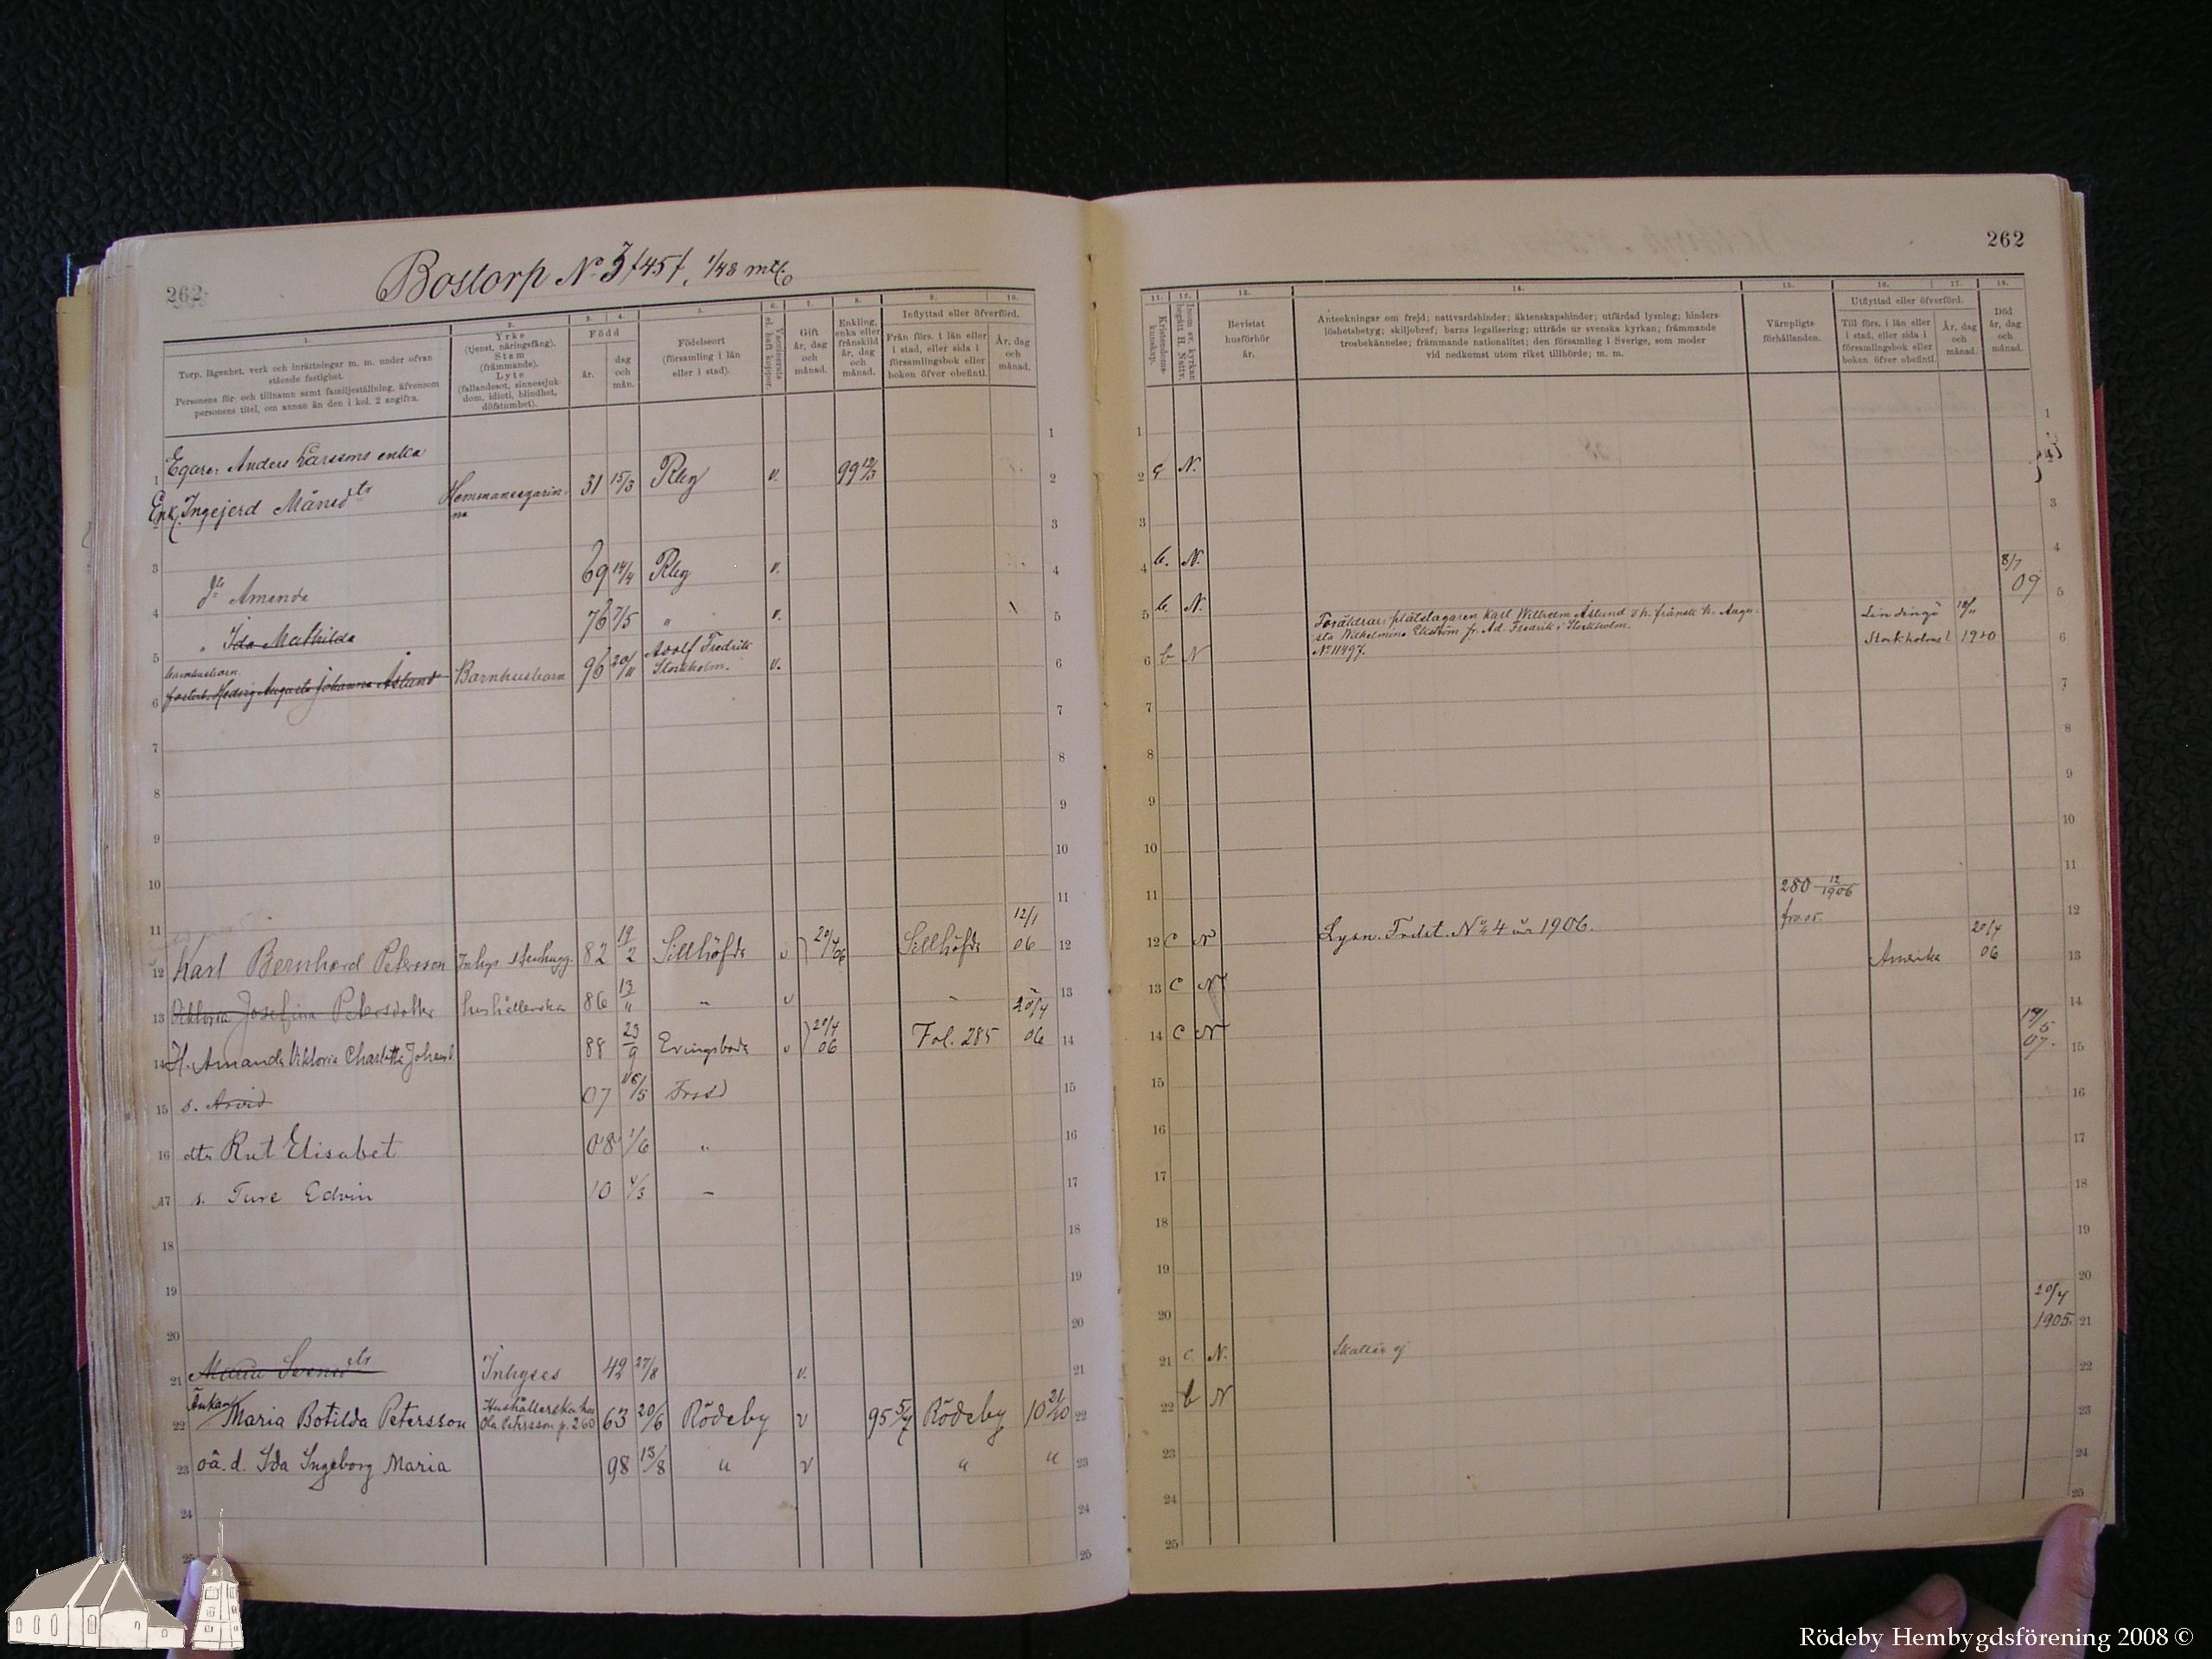 262
Bostorp No 3/45/, 1/48 mtl
1.
Torp, lägenhet, verk och inrättningar m. m. under ofvan
stående fastighet.
Personens för- och tillnamn samt familjeställning, äfvensom
personens titel, om annan än den i kol. 2 angifva.
2.
Yrke
(tjenst, näringsfång),
Stam
(främmande).
Lyte
(fallandesot, sinnessjuk-
dom, idioti, blindhet,
döfstumhet).
3. 4.
Född
år.
dag
och
mån.
5.
Födelseort
(församling i län
eller i stad).
6.
Vaccinerats
el. haft koppor.
7.
Gift
år, dag
och
månad.
8.
Enkling,
enka eller
frånskild
år, dag
och
månad.
9. 10.
Inflyttad eller öfverförd.
Från förs. i län eller
i stad, eller sida i
församlingsbok eller
boken öfver obefintl.
År, dag
och
månad.
1 Egare: Anders Larssons enka
2 Enk. Ingejerd Månsdtr Hemmansegarin-
na 31 15/3 Rby v. 99 12/3
3
4 dtr Amanda 69 14/4 Rby v.
5 " Ida Mathilda 76 7/5 " v.
barnhusbarn
6 fosterb. Hedvig Augusta Johanna Åslund Barnhusbarn 96 20/11 Adolf Fredrik
Stockholm. v.
7
8
9
10
11
12 Karl Bernhard Petersson Inhys stenhugg. 82 19/2 Sillhöfda v 20/4 06 Sillhöfda 12/1 06
13 Viktoria Josefina Petersdotter hushållerska 86 13/11 " v " "
14 H. Amanda Viktoria Charlotta Johansd. 88 23/9 Eringsboda v 20/4 06 Fol. 285 20/4 06
15 s. Arvid 07 16/5 Frsd
16 dtr Rut Elisabet 08 1/6 "
17 s. Ture Edvin 10 4/3 "
18
19
20
21 Maria Svensdtr Inhyses 42 27/8 v.
22 Änkan Maria Botilda Petersson Hushållerska hos
Ola Petersson p. 260 63 20/6 Rödeby v 95 5/7 Rödeby 10 21/10
23 oä. d. Ida Ingeborg Maria 98 13/8 " v " "
24
25
262
11.
Kristendoms-
kunskap.
12.
Inom sv. kyrkan
begått H. Nattv.
13.
Bevistat
husförhör
år.
14.
Anteckningar om frejd; nattvardshinder; äktenskapshinder; utfärdad lysning; hinders-
löshetsbetyg; skiljobref; barns legalisering; utträde ur svenska kyrkan; främmande
trosbekännelse; främmande nationalitet; den församling i Sverige, som moder
vid nedkomst utom riket tillhörde; m. m.
15.
Värnpligts-
förhållanden.
16. 17.
Utflyttad eller öfverförd.
Till förs. i län eller
i stad, eller sida i
församlingsbok eller
boken öfver obefintl.
År, dag
och
månad.
18.
Död
år, dag
och
månad.
1
2 a N.
3
4 b. N.
5 b. N. 8/7 09
6 b N Föräldrar: plåtslagaren Karl Wilhelm Åslund o h. frånsk. h. Augu-
sta Wilhelmina Ekström fr. Ad. Fredrik i Stockholm.
No 11497. Lindingö
Stockholms l. 18/11 1910
7
8
9
10
11
12 c N Lysn. Frdst. No 4 år 1906. 280 12/1906
13 c N Amerika 20/4 06
14 c N
15 19/5 07.
16
17
18
19
20
21 c. N. Skattar ej 20/4 1905
22 b N
23
24
25
Rödeby Hembygdsförening 2008 ©